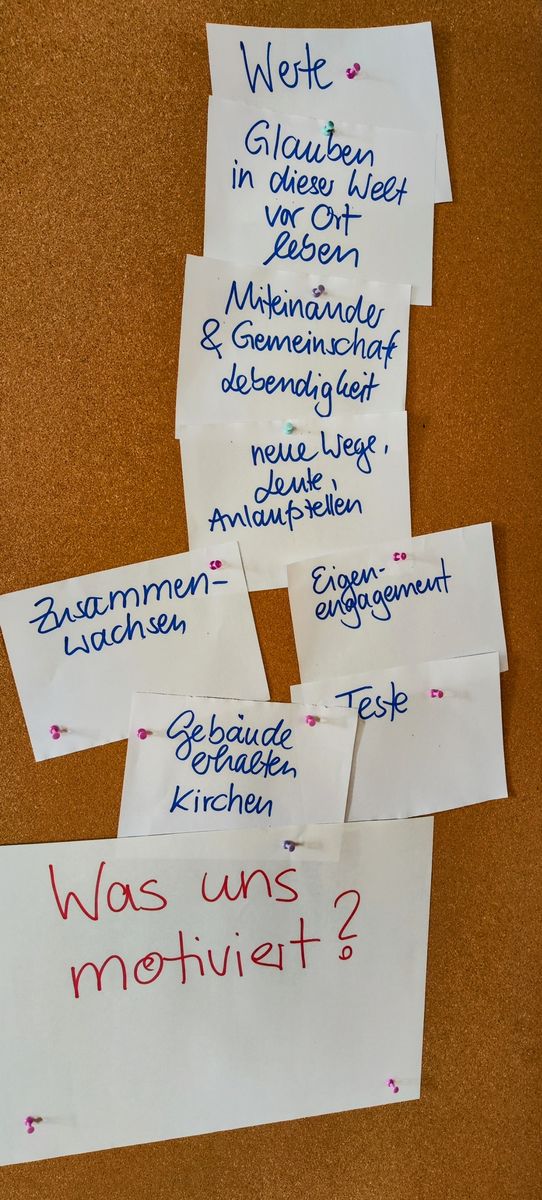 Werte
Glauben
in dieser Welt
vor Ort
leben
Miteinander
& Gemeinschaft
Lebendigkeit
neue Wege,
Leute,
Anlaufstellen
Zusammen-
wachsen
Eigen-
engagement
Feste
Gebäude
erhalten
Kirchen
Was uns
motiviert?